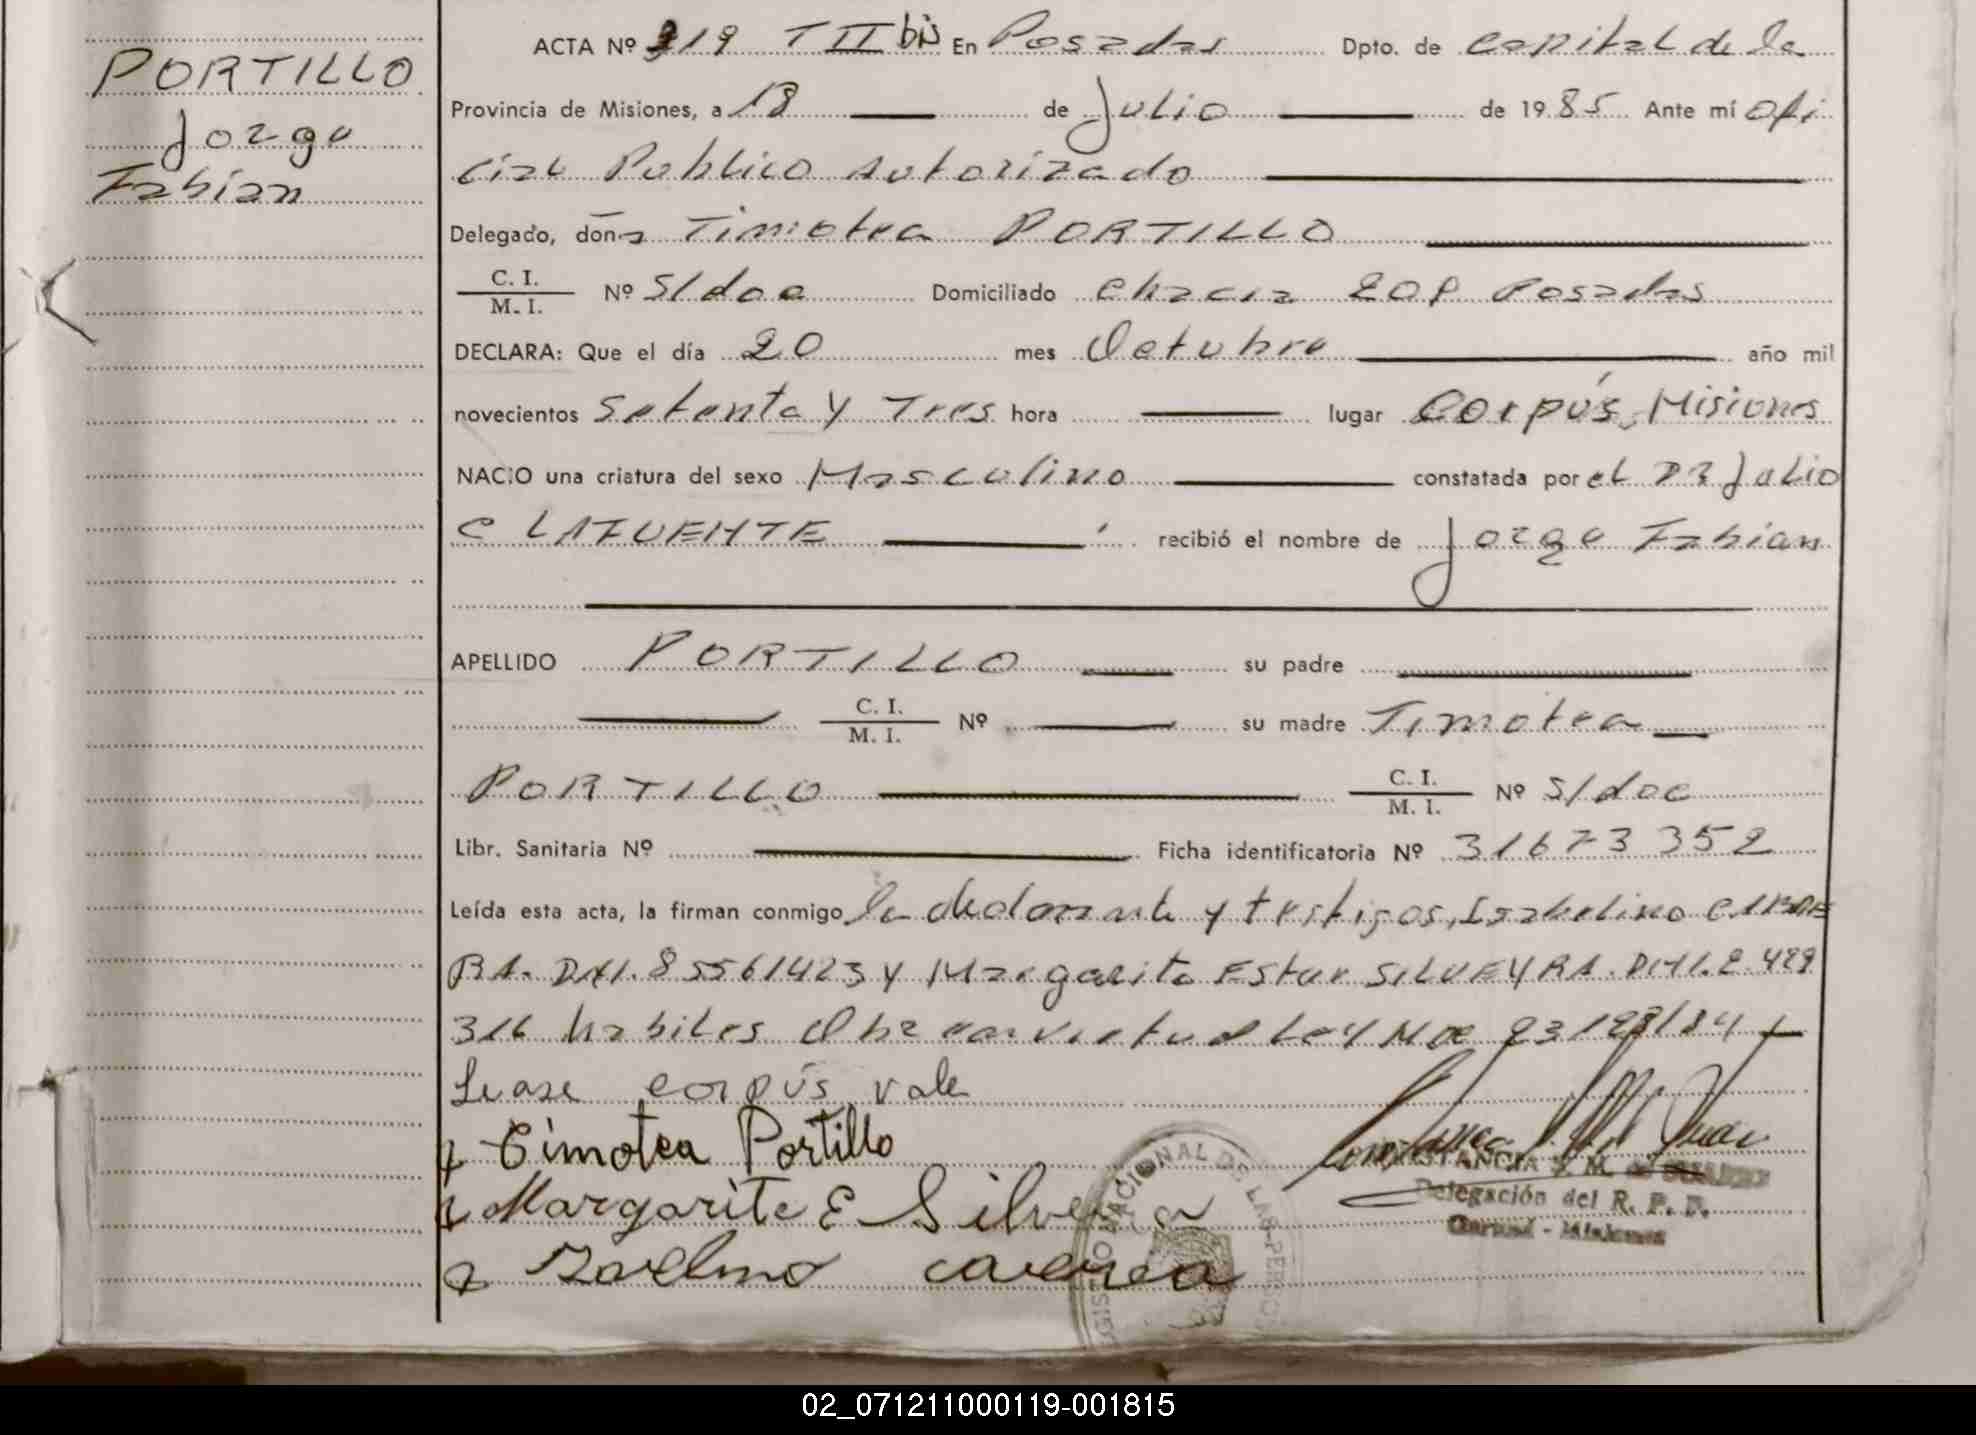 PORTILLO
Jorge
Fabian
ACTA Nº 319 T II bis En Posadas Dpto. de Capital de la
Provincia de Misiones, a 18 de Julio de 1985 Ante mí Ofi
cial Publico autorizado
Delegado, doña Timotea PORTILLO
C. I.
M. I. Nº S/doc Domiciliado Chacra 208 Posadas
DECLARA: Que el día 20 mes Octubre año mil
novecientos Setenta y Tres hora lugar Corpús, Misiones
NACIO una criatura del sexo Masculino constatada por el DR Julio
C LAFUENTE recibió el nombre de Jorge Fabian
APELLIDO PORTILLO su padre
C. I.
M. I. Nº su madre Timotea
PORTILLO C. I.
M. I. Nº S/doc
Libr. Sanitaria Nº Ficha identificatoria Nº 31673352
Leída esta acta, la firman conmigo la declarante y testigos, Isabelino CABRE
RA. DNI. 85561423 y Margarita Ester SILVEYRA. DNI. 2.429
316 habiles Ley 23128/84
Lease corpús vale
Timotea Portillo
Margarita E Silveira
cabrera
CONSTANCIA S. M. de
Delegación del R. P. P.
Garupá - Misiones
REGISTRO NACIONAL DE LAS PERSO
02_071211000119-001815